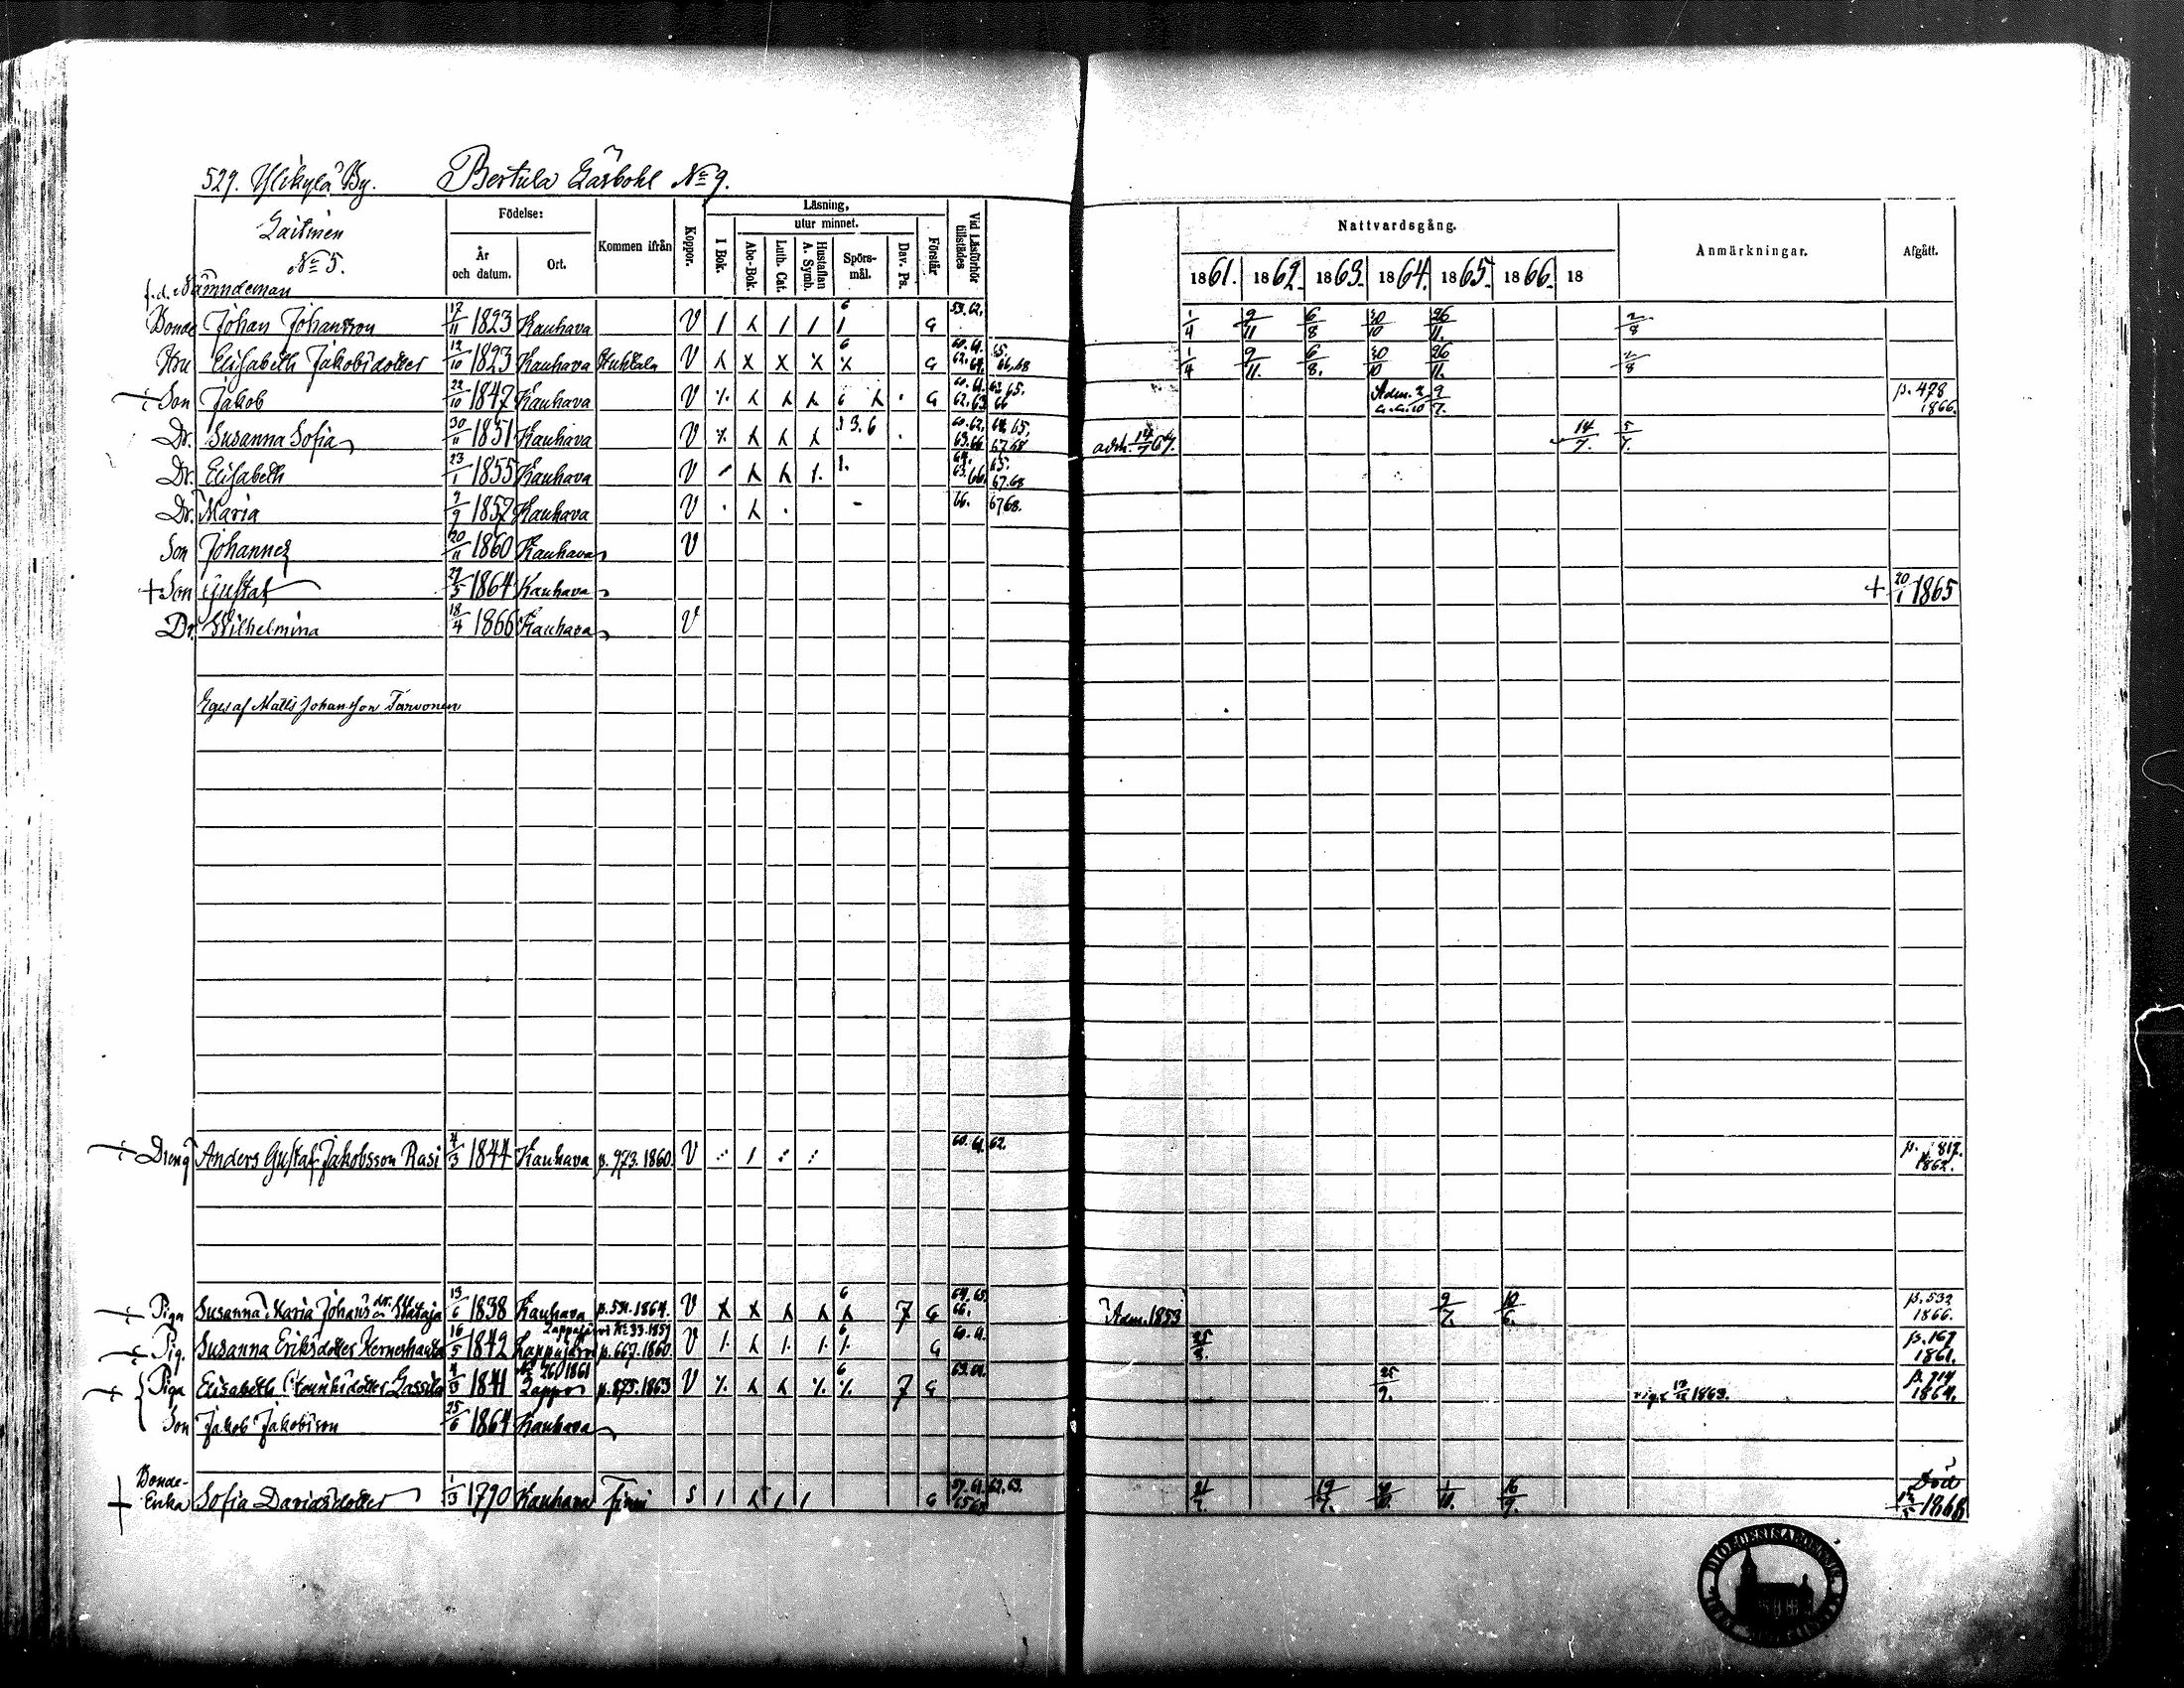 529. Ylikylä By. Bertula Gårbohl No 9.
Laitinen
No 5.
Födelse:
År och datum.
Ort.
Kommen ifrån
Koppor.
Läsning,
utur minnet.
I Bok.
Abc-Bok.
Luth. Cat.
Hustaflan A. Symb.
Spörs-mål.
Dav. Ps.
Förstår
Vid Läsförhör tillstädes
Nattvardsgång.
1861. 1862. 1863. 1864. 1865. 1866. 18
Anmärkningar.
Afgått.
f.d. Nämndeman
Bonde Johan Johansson 17/11 1823 Kauhava V 6 G 53. 62. 1/4 9/11 6/8 30/10 26/11. 2/8
Hru Elisabeth Jakobsdotter 12/10 1823 Kauhava Huhtala V 6 G 60. 61. 62. 64. 65. 66. 68 1/4 9/11. 6/8. 30/10 26/11. 2/8
Son Jakob 22/10 1847 Kauhava V 6 G 60. 61. 62. 63. 65. 66 9/7. p. 478 1866.
Dr. Susanna Sofia 30/11 1851 Kauhava V 3. 6 60. 62. 64. 65. 67. 68 14/7. 5/7.
Dr. Elisabeth 23/1 1855 Kauhava V 64. 65. 63. 66. 67. 68
Dr. Maria 9/9 1857 Kauhava V 66. 67 68.
Son Johannes 20/11 1860 Kauhava V
+ Son Gustaf 29/5 1864 Kauhava + 20/1 1865
Dr. Wilhelmina 18/4 1866 Kauhava V
Eges af Matts Johansson Tarvonen
Dreng Anders Gustaf Jakobsson Rasi 4/3 1844 Kauhava p. 973. 1860. V 60. 61. 62. p. 817. 1862.
Piga Susanna Maria Johans dr. Hataja 13/6 1838 Kauhava p. 531. 1864. V 6 7 G 64. 65. 66. Adm. 1853 9/7. 10/6. p. 532 1866.
Lappajärvi No 33. 1859
Pig. Susanna Eriksdotter 16/5 1842 Lappajärvi p. 667. 1860. V 6 G 60. 61. 25/3. p. 167 1861.
No 260 1861
Piga Elisabeth Lassila 4/3 1841 Lappo p. 875. 1863 V 6 7 G 63. 64. 25/9. 1863. p. 714 1864.
Son Jakob Jakobsson 25/6 1864 Kauhava
Bonde-
+ Enka Sofia Dariasdotter 1/3 1790 Kauhava S G 62. 63. 19/7. 1/10. 16/9. Död 1868